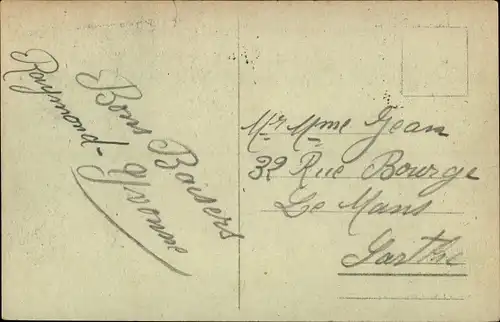 Bons Baisers
Raymond - Yvonne
Mr Mme Jean
32 Rue Bourge
Le Mans
Sarthe